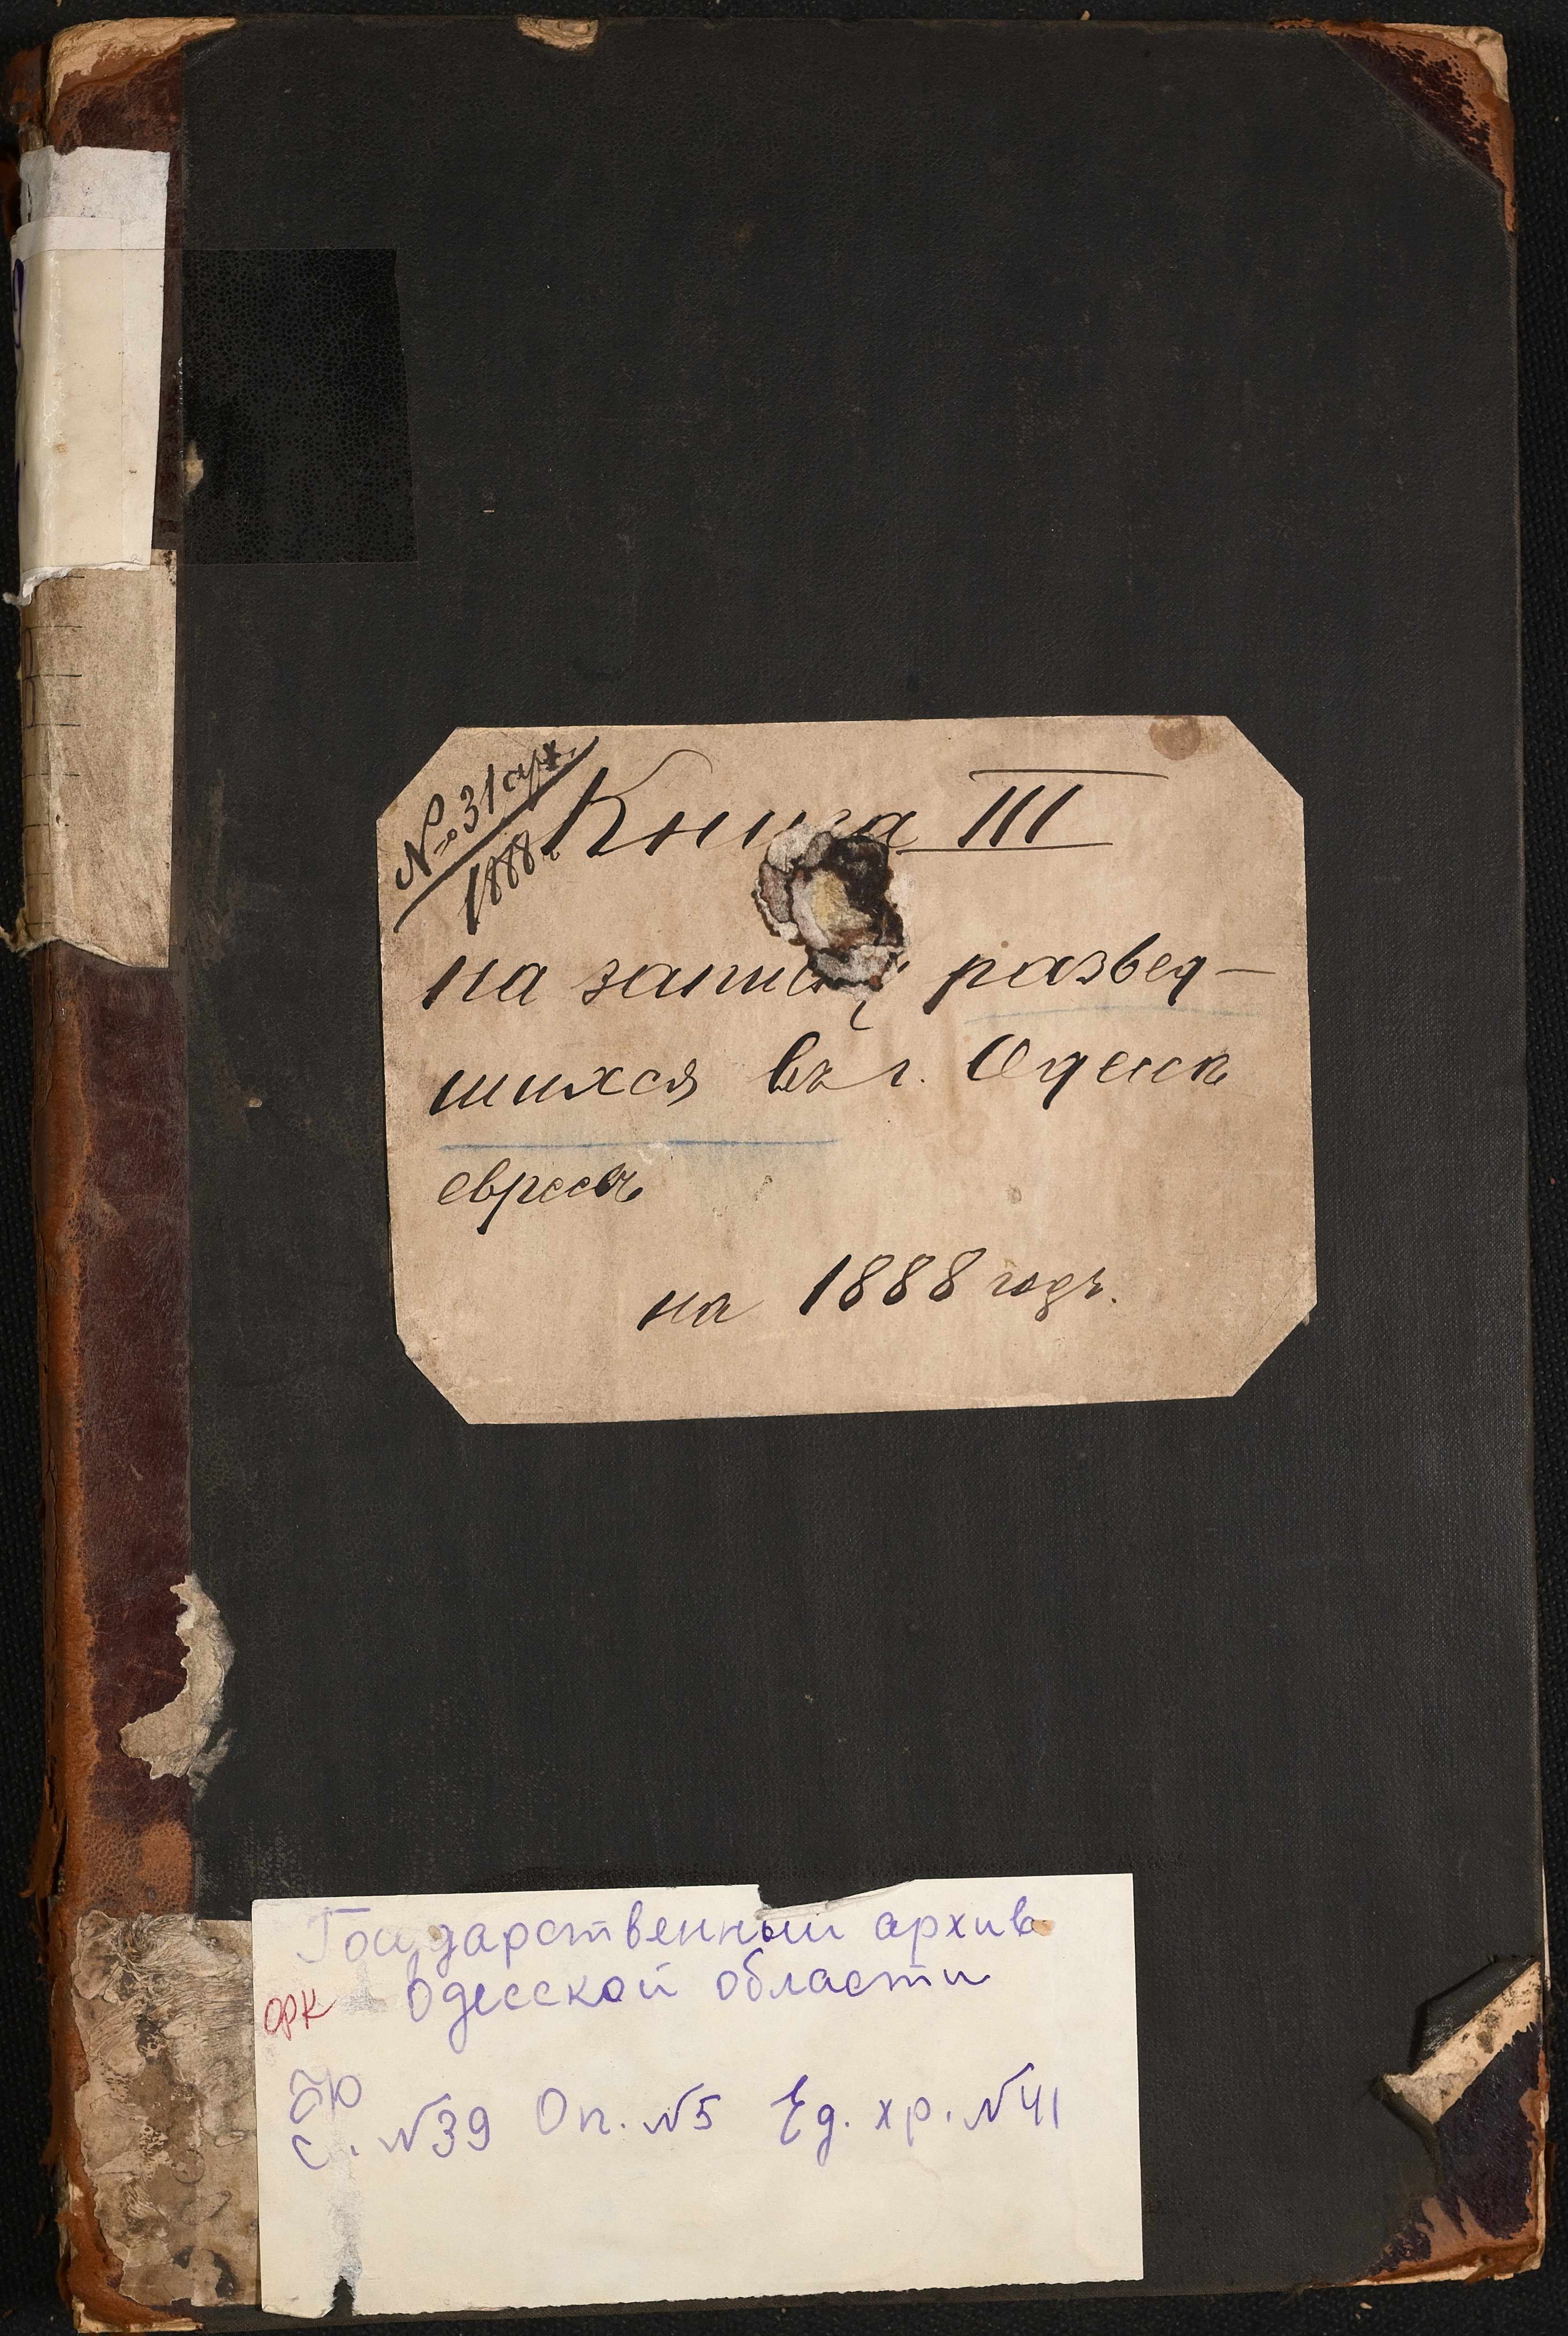 № 31 арх.
1888 г.
Книга III
на запись развед-
шихся въ г. Одессѣ
евреевъ
на 1888 годъ.
Государственный архив
Одесской области
ОРК
№39 Оп. №5 Ед. хр. №41